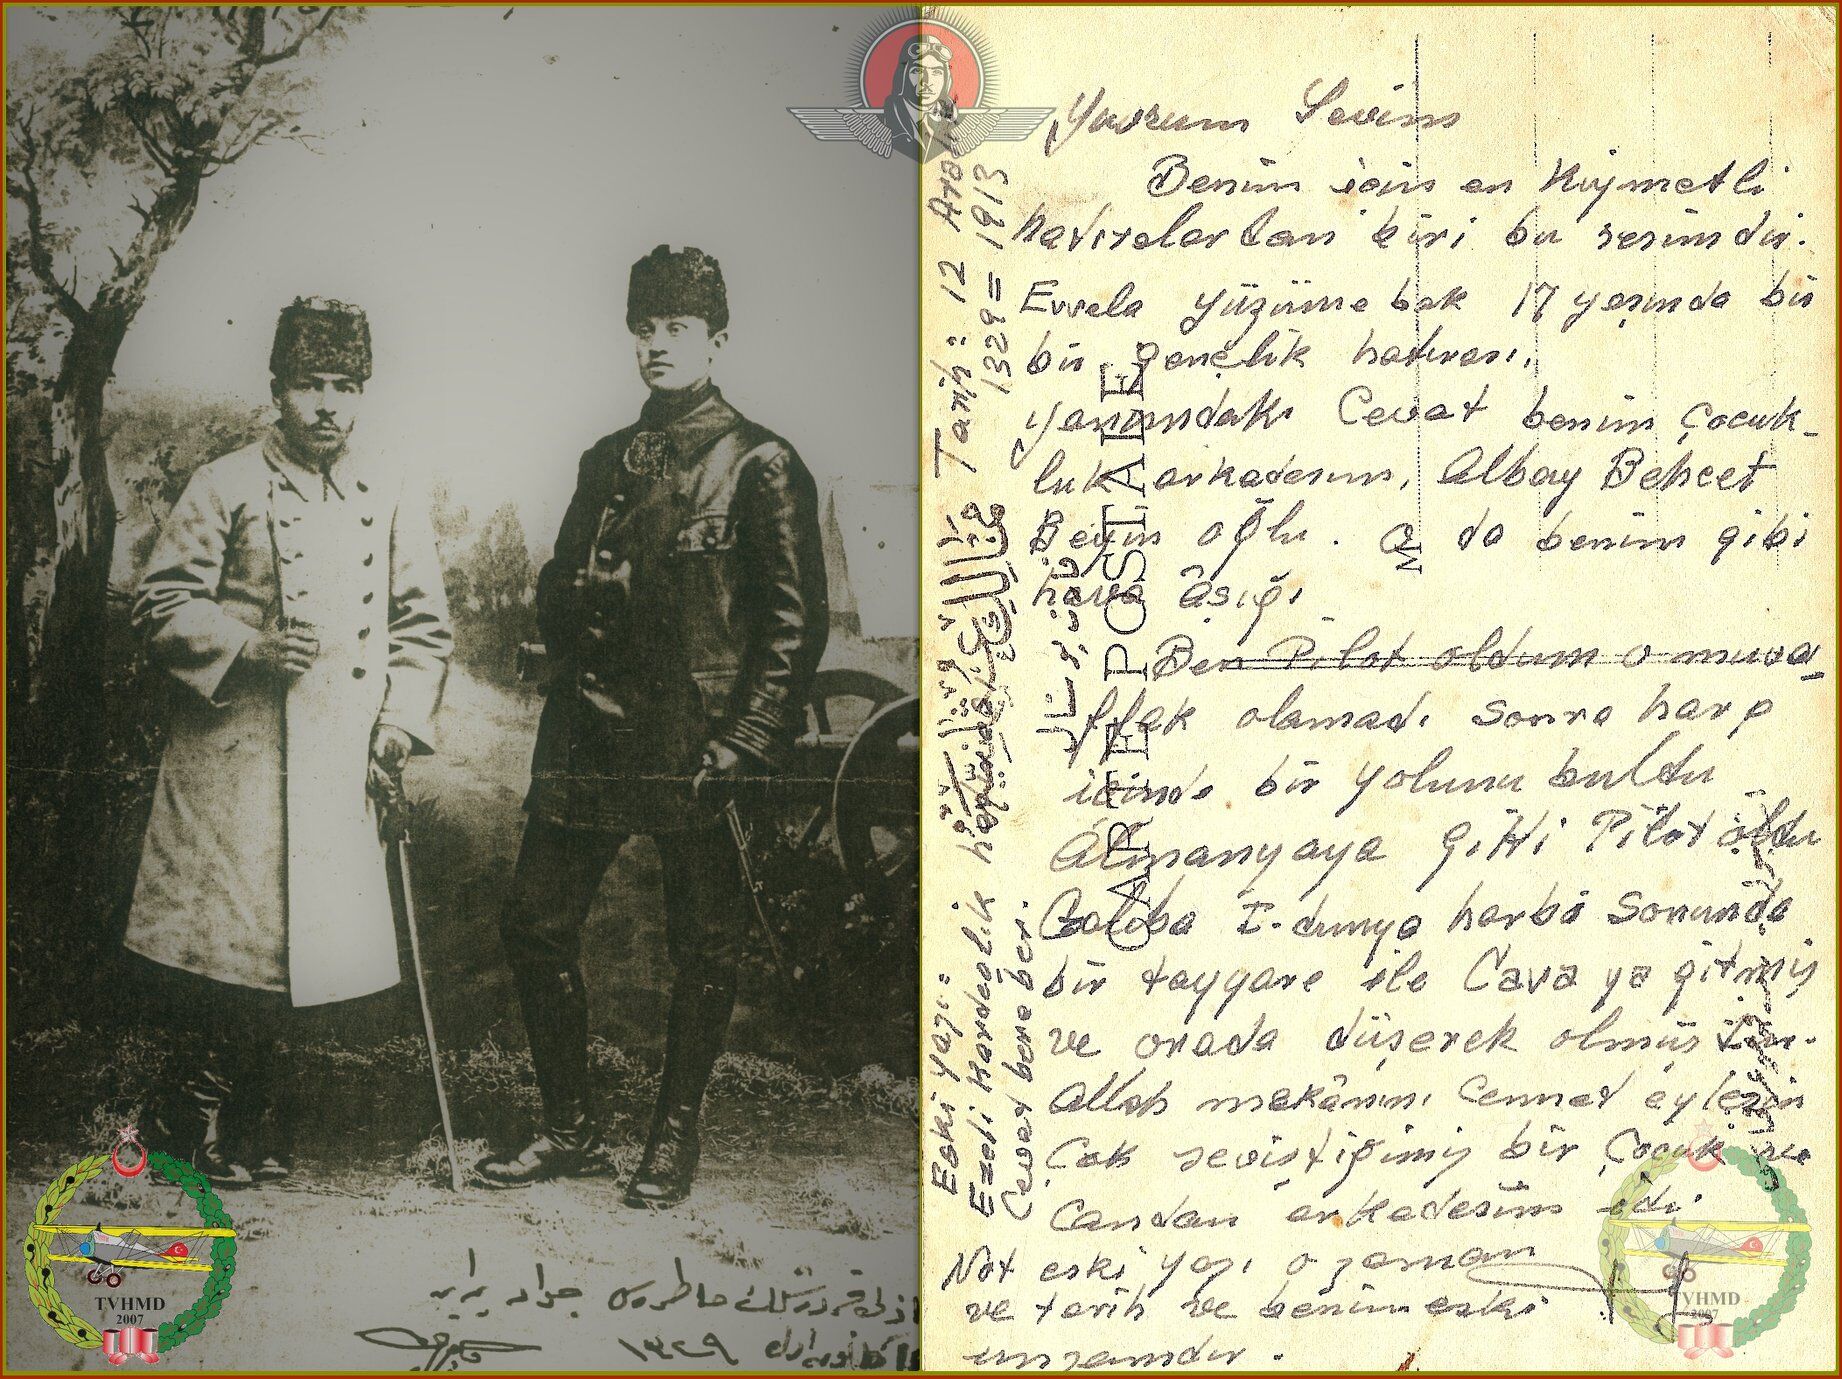 Yavrum Sevim
Benim için en kıymetli
hatıralardan biri bu resimdir.
Evvela yüzüme bak 17 yaşında bir
bir gençlik hatırası.
Yanımdaki Cevat benim çocuk-
luk arkadaşım, Albay Behcet
Beyin oğlu. O da benim gibi
hava âşığı
Ben Pilot oldum o muva-
ffak olamadı sonra harp
içinde bir yolunu buldu
Almanyaya gitti Pilot oldu
Galiba I. dunya harbi sonunda
bir tayyare ile Cava ya gitmiş
ve orada düşerek ölmüştür.
Allah mekânını Cennet eylesin
Çok seviştiğimiz bir Çocuk ve
Candan arkadaşım idi
Not eski yazı o zaman
ve tarih ve benim eski
imzamdır.
Tarih: 12 Aralık
1329 = 1913
Eski yazı:
Ezeli Kardeşlik hatırası
Cevat bera ber.
CARTE POSTALE
جواد برابر
١٣٢٩
TVHMD
2007
TVHMD
2007